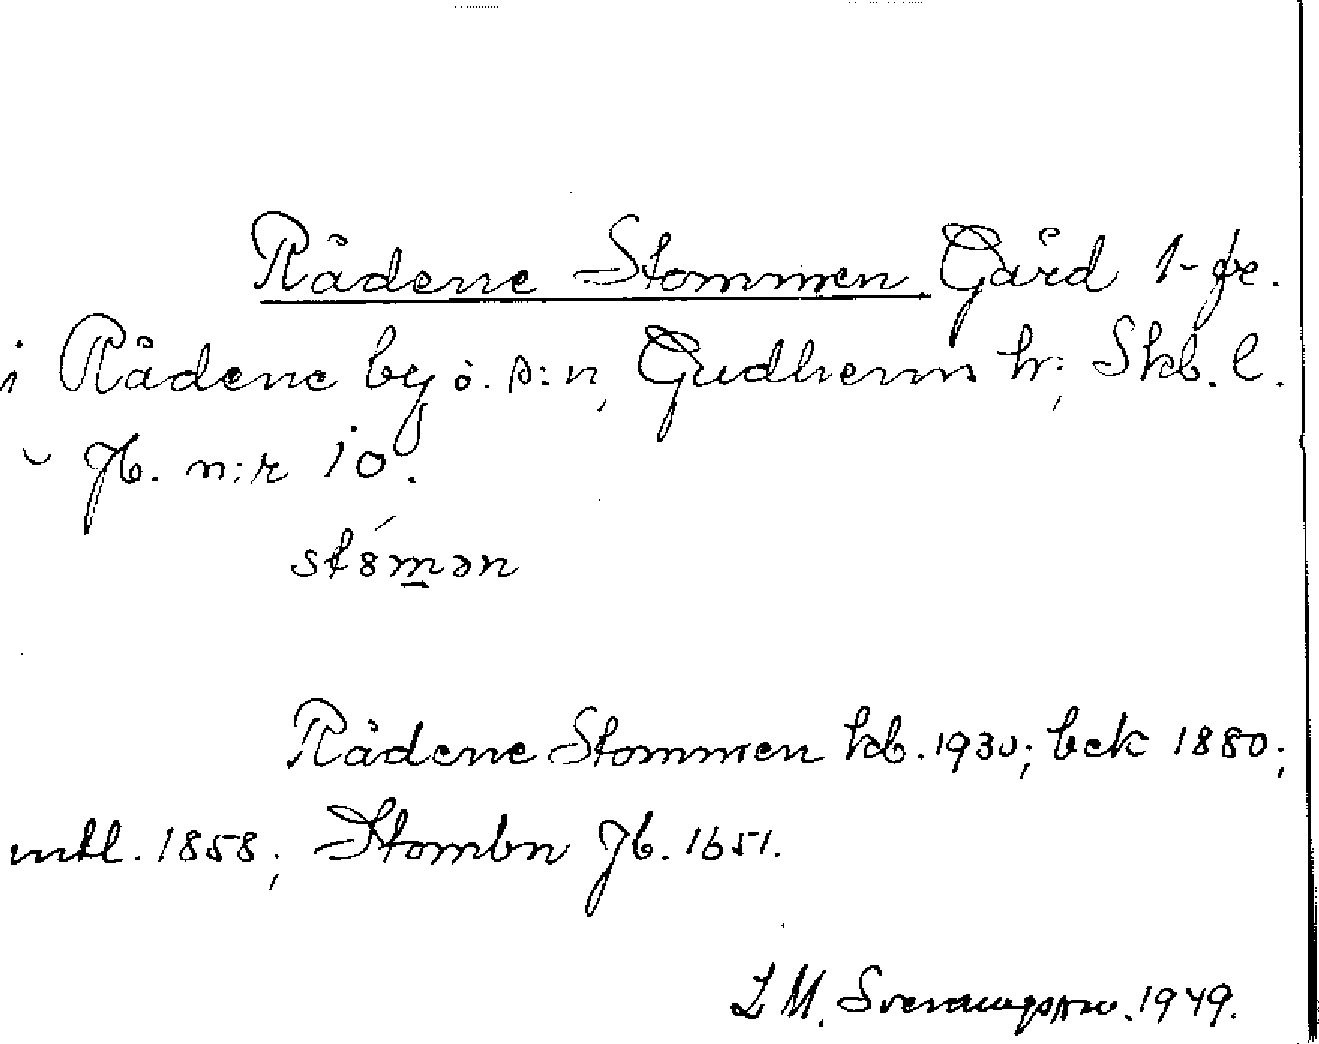 Rådene Stommen Gård 1-fe.
i Rådene by o. s:n, Gudhems hr; Skb. l.
Jb. n:r 10.
Rådene Stommen kb. 1930; bck 1880;
mtl. 1858; Stombn Jb. 1651.
L M. Sveningsson. 1949.